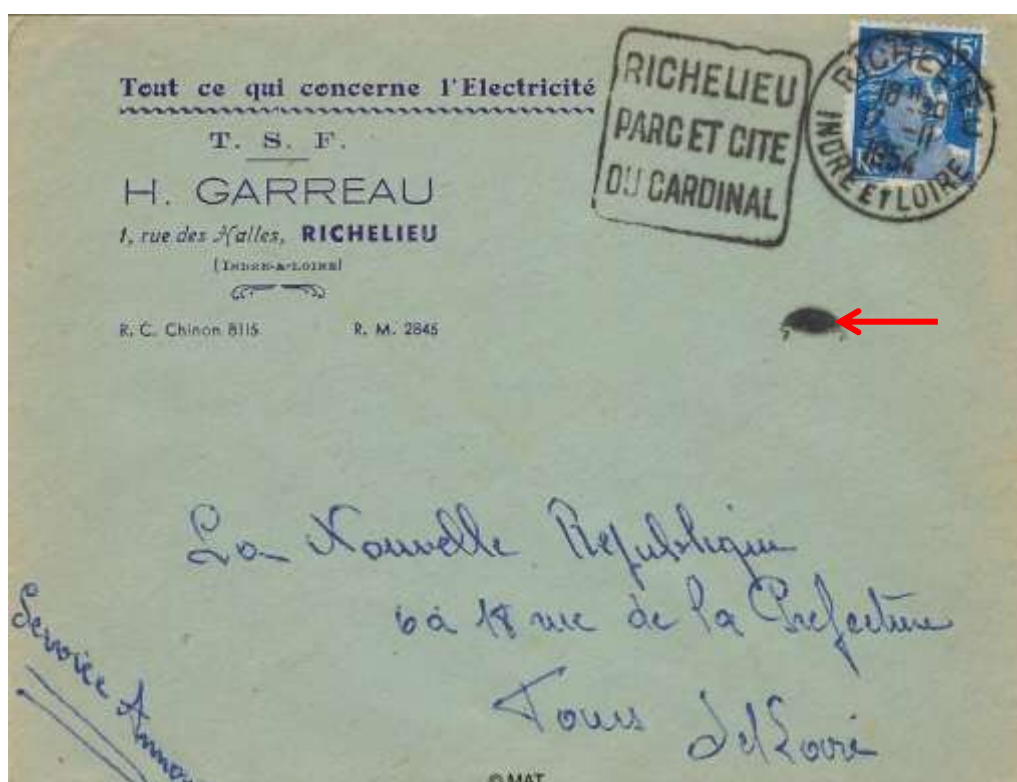 Tout ce qui concerne l'Electricité
T. S. F.
H. GARREAU
1, rue des Halles, RICHELIEU
(INDRE-&-LOIRE)
R. C. Chinon 8115 R. M. 2845
RICHELIEU
PARC ET CITE
DU CARDINAL
15F
RICHELIEU
18H30
-11
1954
INDRE ET LOIRE
La Nouvelle République
6 à 18 rue de la Préfecture
Tours I et Loire
Service
© MAT